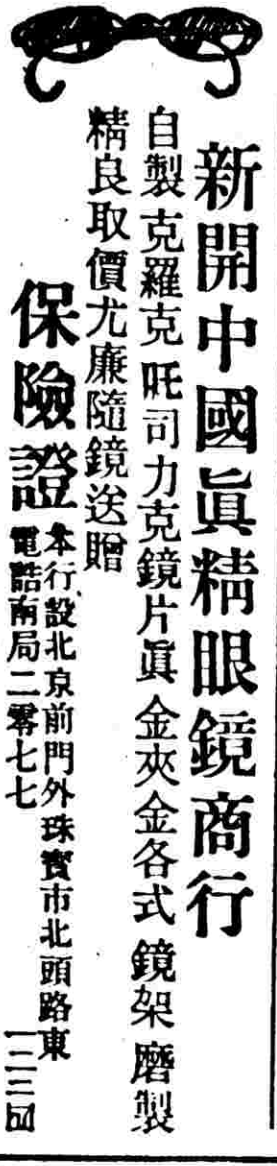 新開中國眞精眼鏡商行
自製克羅克吒司力克鏡片眞金夾金各式鏡架磨製
精良取價尤廉隨鏡送贈
保險證
本行設北京前門外珠寶市北頭路東
電話南局二零七七